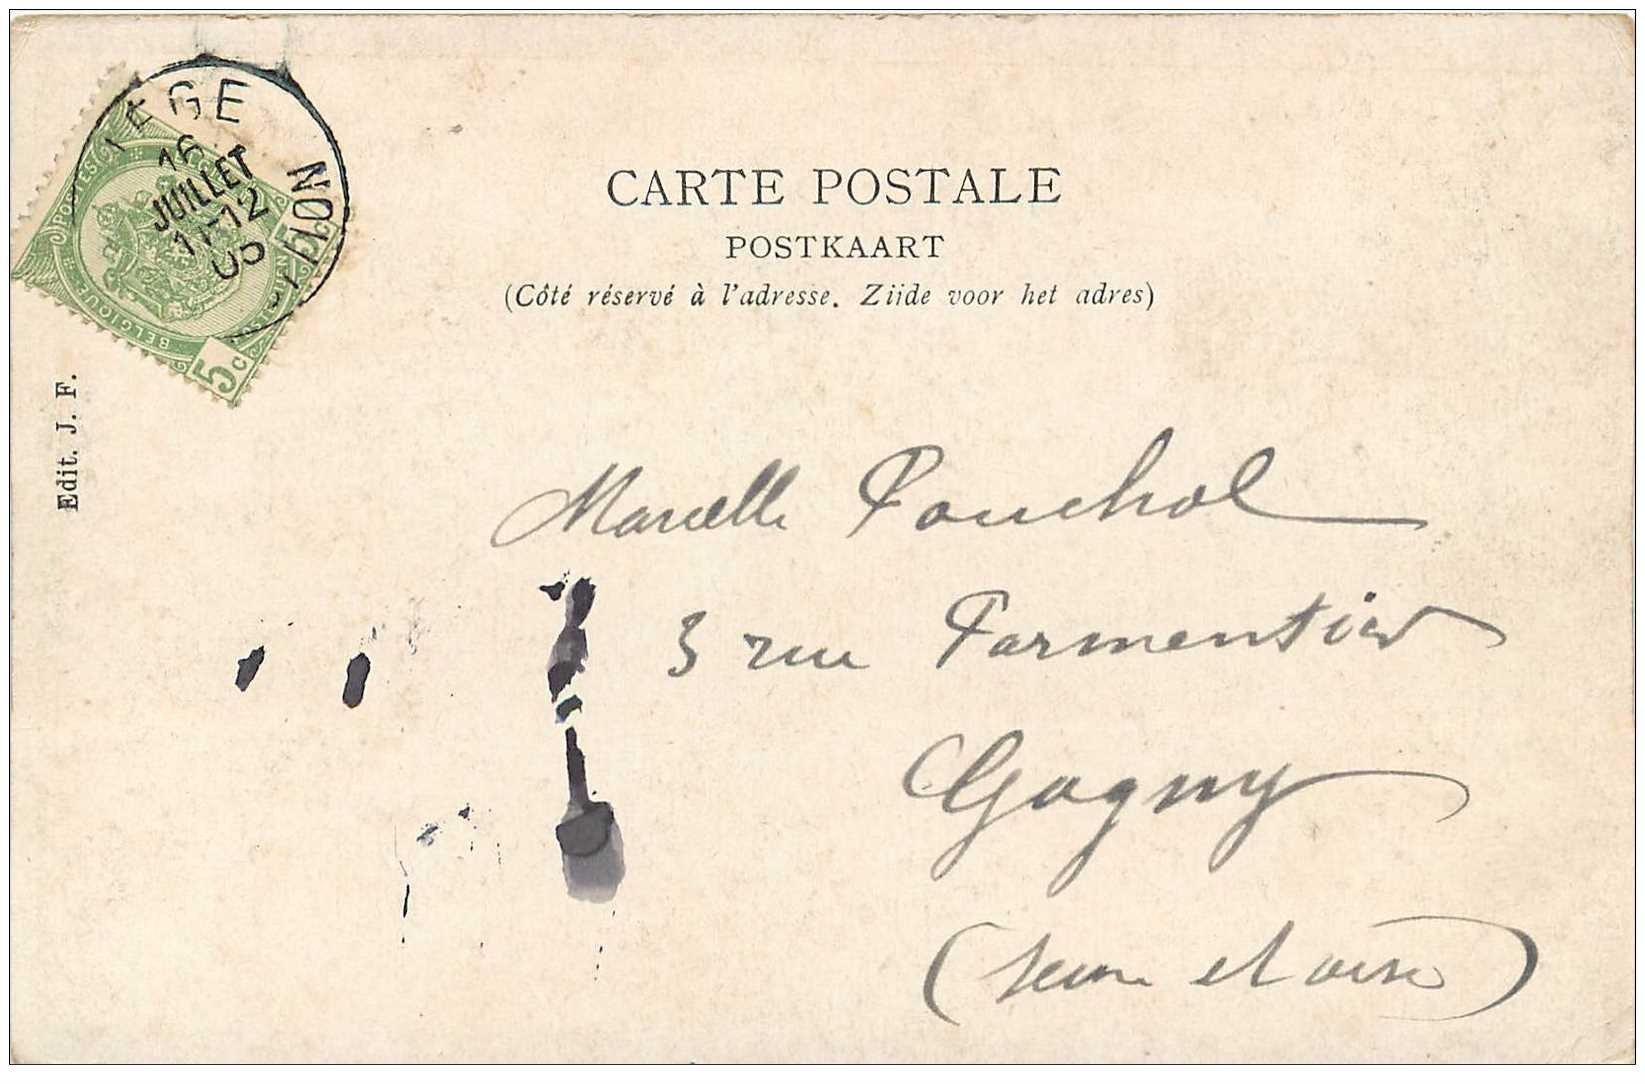 CARTE POSTALE
POSTKAART
(Côté réservé à l'adresse. Ziide voor het adres)
IEGE
16
JUILLET
11-12
05
POSTES
BELGIQUE
5c
Edit. J. F.
Marcelle Pouchol
3 rue Parmentier
Gagny
(Seine et oise)